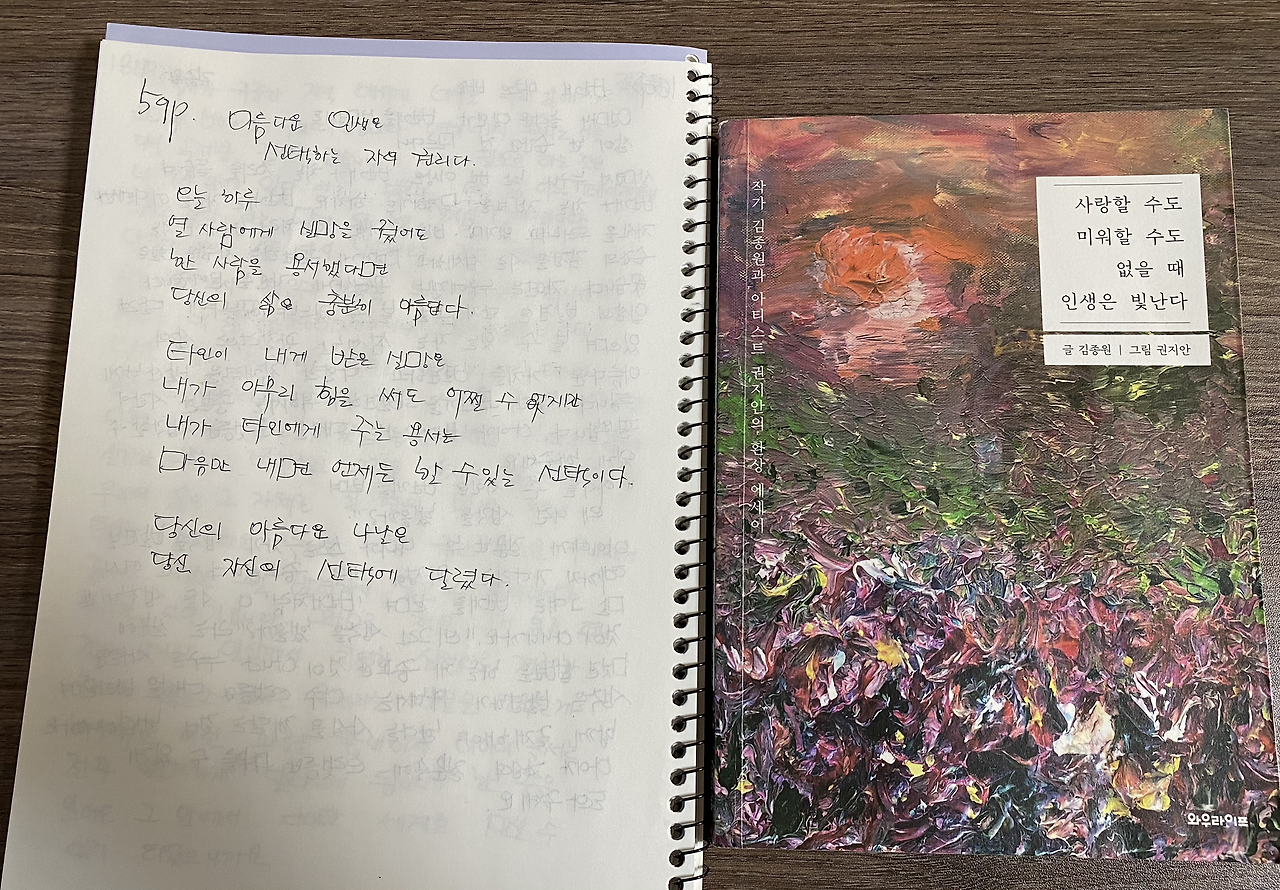 59p.
아름다운 인생은
선택하는 자의 권리다.
오늘 하루
열 사람에게 실망을 줬어도
한 사람을 용서했다면
당신의 삶은 충분히 아름답다.
타인이 내게 받은 실망은
내가 아무리 힘을 써도 어쩔 수 없지만
내가 타인에게 주는 용서는
마음만 내면 언제든 할 수 있는 선택이다.
당신의 아름다운 나날은
당신 자신의 선택에 달렸다.
작가 김종원과 아티스트 권지안의 환상 에세이
사랑할 수도
미워할 수도
없을 때
인생은 빛난다
글 김종원 | 그림 권지안
와우라이프